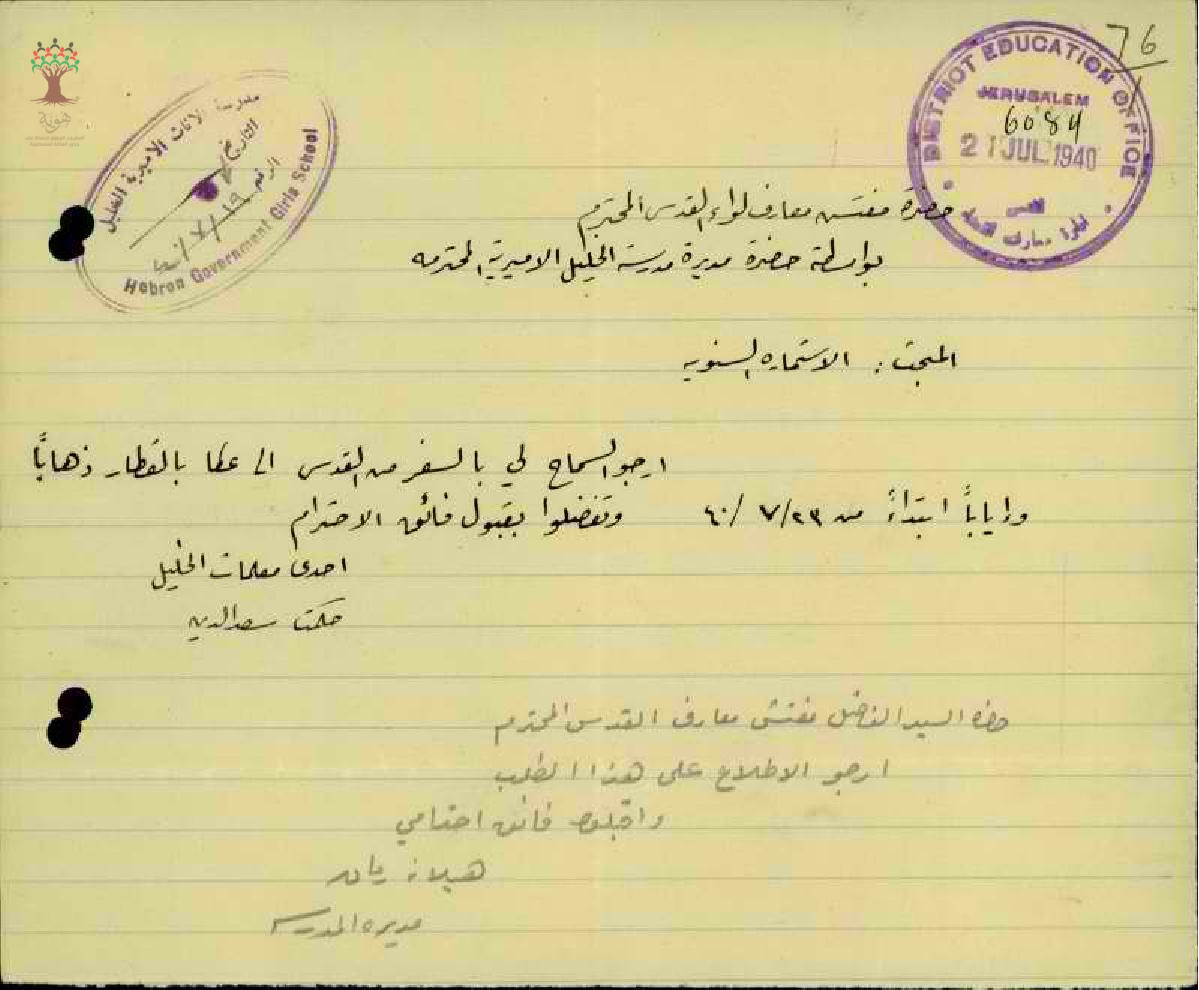 76
DISTRICT EDUCATION OFFICE
JERUSALEM
6084
21 JUL 1940
القدس
ادارة معارف
هوية
مدرسة الاناث الاميرية الخليل
التاريخ
الرقم
Hebron Government Girls School
حضرة مفتش معارف لواء القدس المحترم
بواسطة حضرة مديرة مدرسة الخليل الاميرية المحترمه
المبحث : الاستماره السنويه
ارجو السماح لي بالسفر من القدس الى عكا بالقطار ذهاباً
واياباً ابتداءً من ٢٣/٧/٤٠ وتفضلوا بقبول فائق الاحترام
احدى معلمات الخليل
حكمت سعد الدين
حضرة السيد الفاضل مفتش معارف القدس المحترم
ارجو الاطلاع على هذا الطلب
واقبلوا فائق احترامي
هيلانه
مديره المدرسه